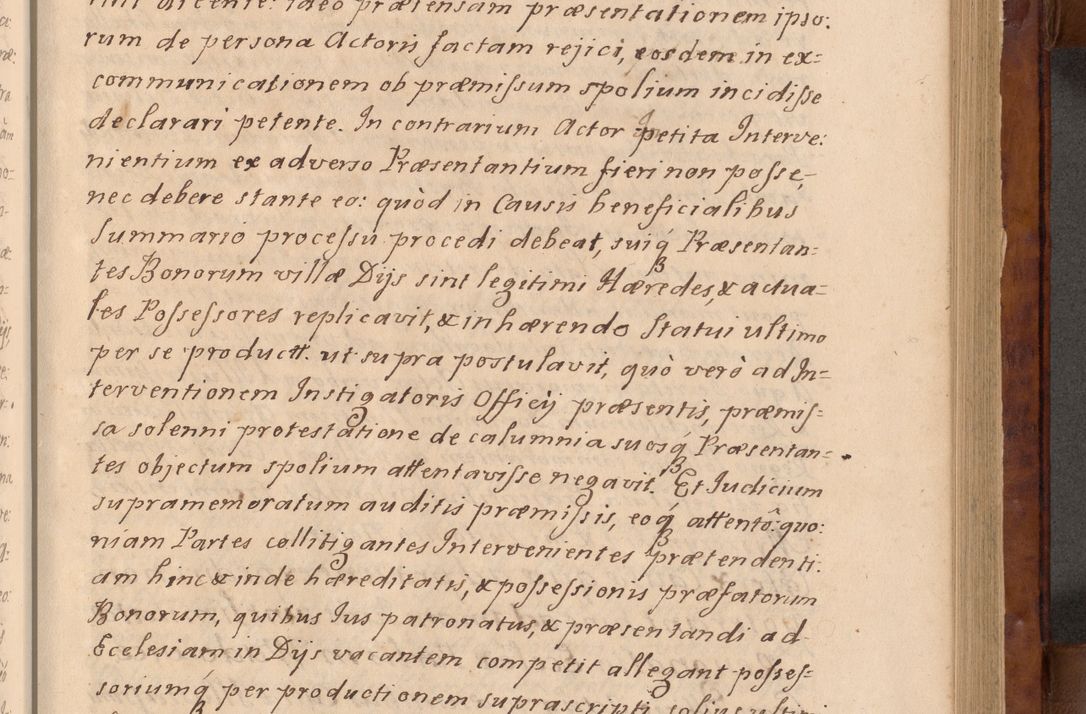 dicente: ideo prætensam præsentationem ipso:
rum de persona Actoris factam rejici, eosdem in ex=
communicationem ob præmissum spolium incidisse
declarari petente. In contrarium Actor petita Interve:
nientium ex adverso Præsentantium fieri non posse,
nec debere stante eo: quòd in Causis beneficialibus
summario processu procedi debeat, suiq́ Præsentan=
tes Bonorum villæ Dijs sint legitimi Hæredes, & actua=
les Possessores replicavit, & inhærendo Statui ultimo
per se productt. ut supra postulavit, quò verò ad In=
terventionem Instigatoris Officÿ præsentis, præmis=
sa solenni protestatione de calumnia suosq́ Præsentan=
tes objectum spolium attentavisse negavit. Et Iudicium
supramemoratum auditis præmissis, eoq́ attentô: quo:
niam Partes collitigantes Intervenientes prætendenti:
am hinc & inde hæreditatis, & possessionis præfatorum
Bonorum, quibus Ius patronatus, & præsentandi ad
Ecclesiam in Dijs vacantem competit allegant posses=
soriumq́ per productionem suprascripti